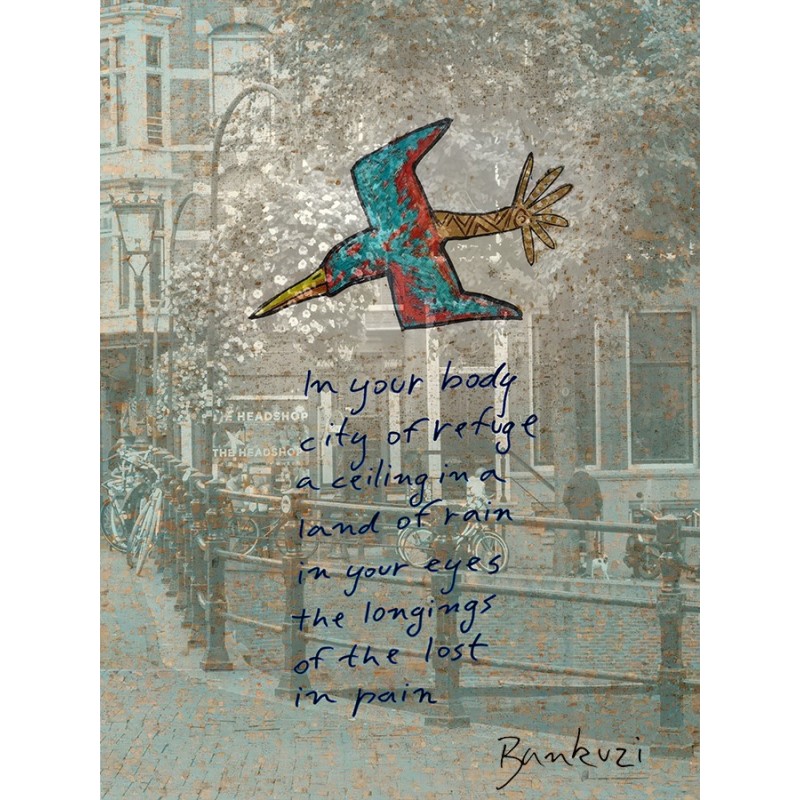 THE HEADSHOP
THE HEADSHOP
In your body
city of refuge
a ceiling in a
land of rain
in your eyes
the longings
of the lost
in pain
Bankuzi